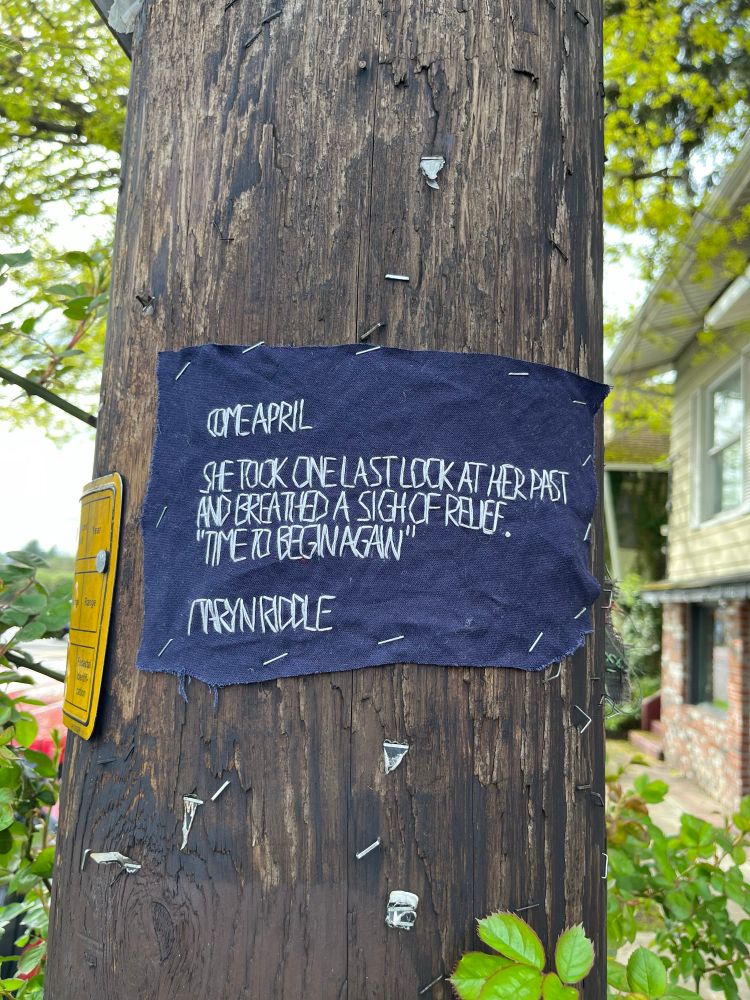 COME APRIL
SHE TOOK ONE LAST LOOK AT HER PAST
AND BREATHED A SIGH OF RELIEF.
"TIME TO BEGIN AGAIN"
TARYN RIDDLE
Year
Range